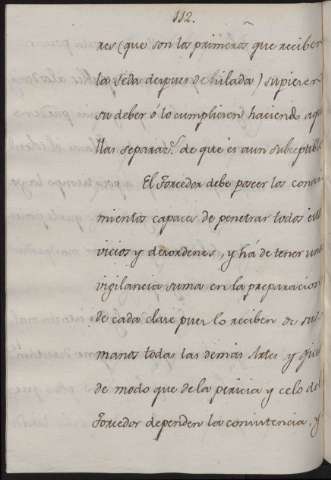 112.
res (que son los primeros que reciben
la seda despues de hilada) supieren
su deber ó lo cumpliesen haciendo aque
llas separaz.s de que es aun subceptible
El Torcedor debe poseer los conoci
mientos capaces de penetrar todos estos
vicios y desordenes, y há de tener una
vigilancia suma en la preparacion
de cada clase pues lo reciben de sus
manos todas las demas Artes y
de modo que de la pericia y celo del
Torcedor dependen la consistencia, y